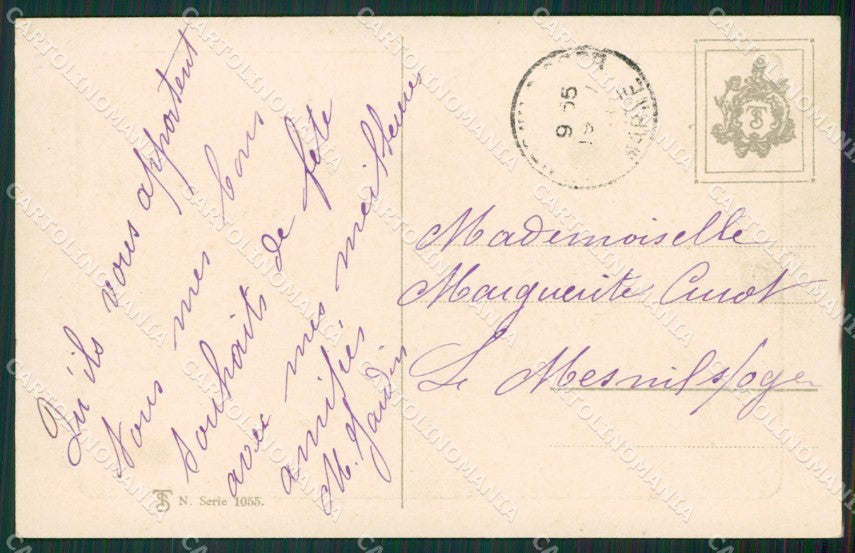 Qu'ils vous apportent
tous mes bons
souhaits de fête
avec mes meilleures
amitiés
M. Gaudin
Mademoiselle
Marguerite Curot
Le Mesnil s/oger
TS N. Serie 1055.
9 55
CARTOLINOMANIA